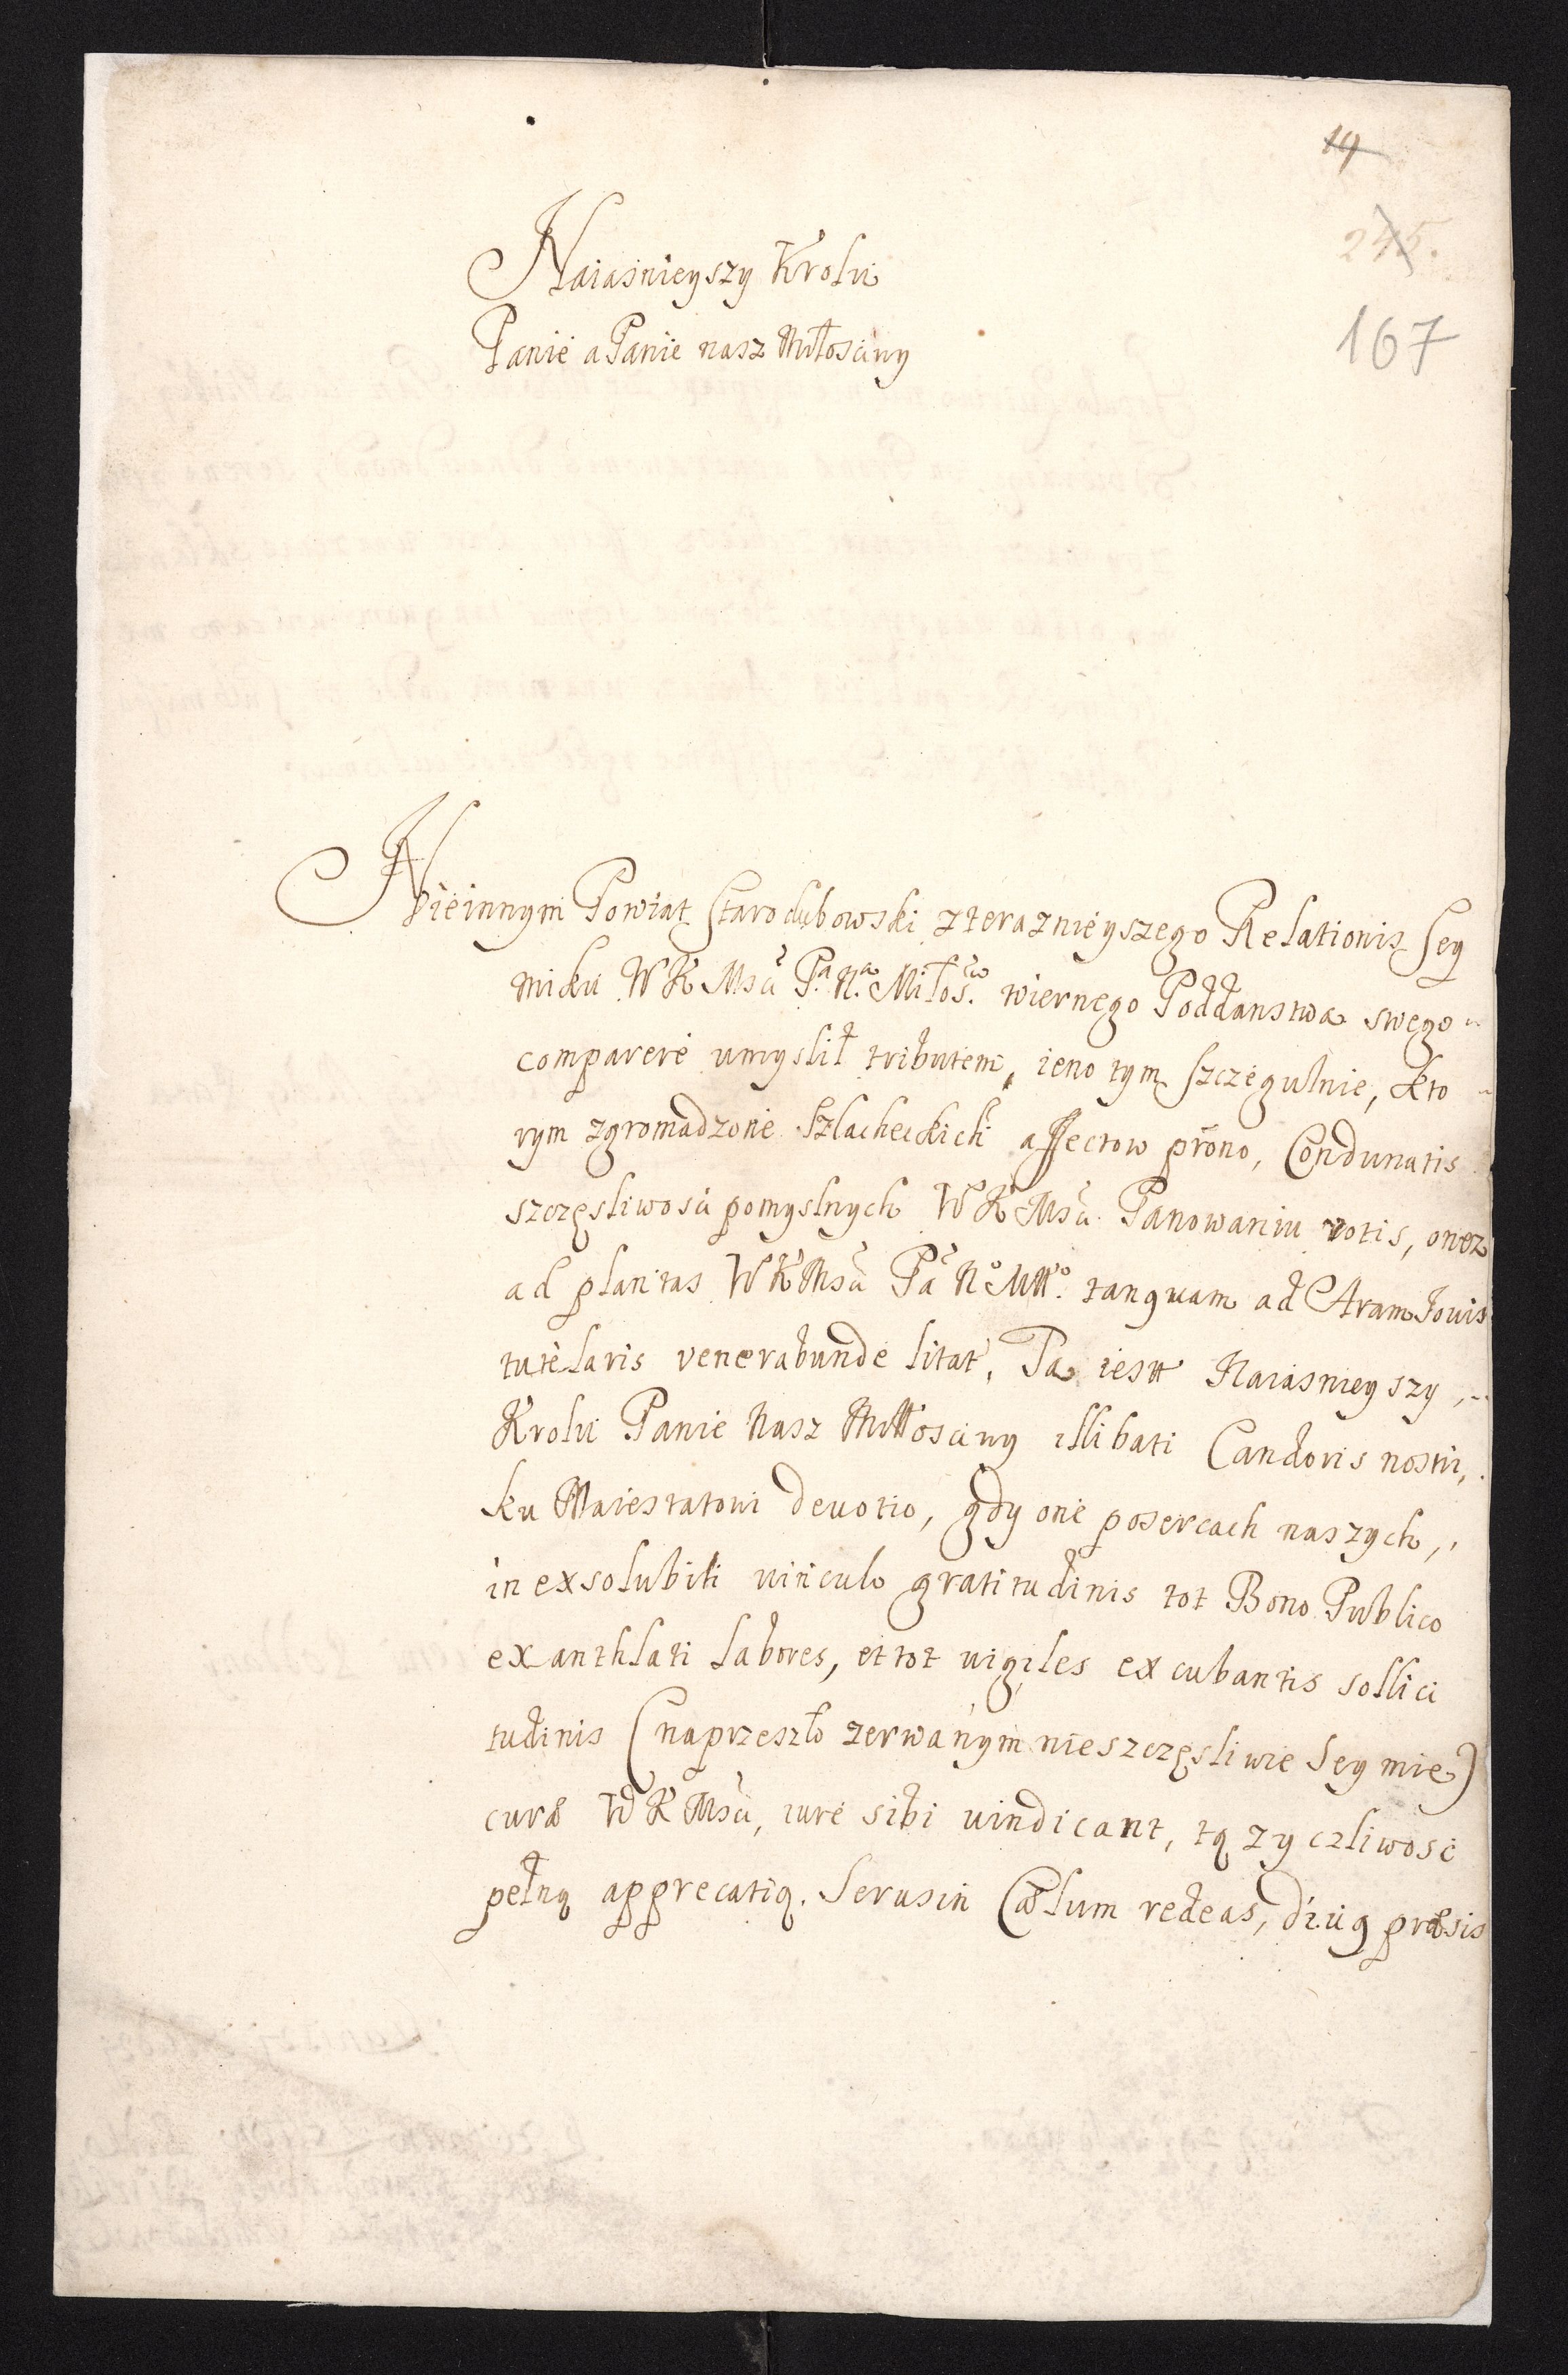 14
245.
167
Naiaśnieyszy Krolu
Panie a Panie nasz Miłosciwy
Nieinnym Powiat Starodubowski zteraznieyszego Relationis Sey
miku WKMsci Pa Na Miłosw wiernego Poddanstwa swego
comparere umyslił tributem, ieno tym szczegulnie, kto
rym zgromadzone Szlacheckich affectow prono, Condunatis
szczęsliwosci pomyslnych WKMsci Panowaniu votis, onez
ad plantas WKMsci Pa No Miło tanquam ad Aram Jouis
tutelaris venerabunde litat, Ta iest Naiasnieyszy
Krolu Panie Nasz Miłosciwy illibati Candoris nostri,
ku Maiestatowi deuotio, gdy one posercach naszych,
in exsolubili uinculo gratitudinis tot Bono Publico
exanthlati labores, et tot uigiles excubantis sollici
tudinis (naprzeszło zerwanym nieszczęsliwie Seymie)
curæ WKMsci, iure sibi uindicant, tą zyczliwosc
pełną apprecatią. Serus in Cœlum redeas, diuq præsis